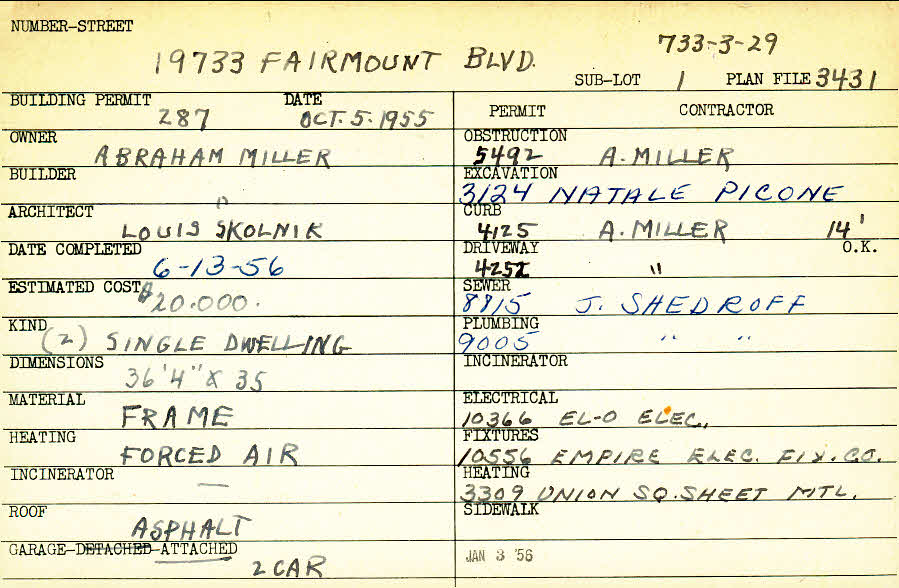 NUMBER-STREET
19733 FAIRMOUNT BLVD.
733-3-29
SUB-LOT 1 PLAN FILE 3431
BUILDING PERMIT 287 DATE OCT. 5. 1955
OWNER
ABRAHAM MILLER
BUILDER
ARCHITECT
LOUIS SKOLNIK
DATE COMPLETED
6-13-56
ESTIMATED COST $20.000.
KIND
(2) SINGLE DWELLING
DIMENSIONS
36'4" X 35
MATERIAL
FRAME
HEATING
FORCED AIR
INCINERATOR —
ROOF
ASPHALT
GARAGE-DETACHED-ATTACHED
2 CAR
PERMIT CONTRACTOR
OBSTRUCTION
5492 A. MILLER
EXCAVATION
3124 NATALE PICONE
CURB
4125 A. MILLER 14'
DRIVEWAY O.K.
4252 "
SEWER
8815 J. SHEDROFF
PLUMBING
9005 " "
INCINERATOR
ELECTRICAL
10366 EL-O ELEC.
FIXTURES
10556 EMPIRE ELEC. FIX. CO.
HEATING
3309 UNION SQ. SHEET MTL.
SIDEWALK
JAN 3 '56